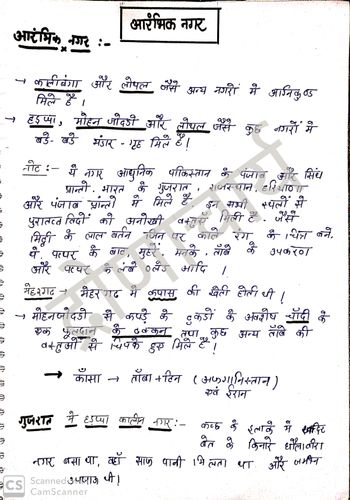 आरंभिक नगर
आरंभिक नगर :-
→ कालीबंगा और लोथल जैसे अन्य नगरों में अग्निकुण्ड
मिले है।
→ हड़प्पा, मोहन जोदडो और लोथल जैसे कुछ नगरों में
बडे- बडे भंडार - गृह मिले है।
नोट:- ये नगर आधुनिक पाकिस्तान के पंजाब और सिंध
प्रान्तों, भारत के गुजरात, राजस्थान, हरियाणा
और पंजाब प्रांतो में मिले है। इन सभी स्थलों से
पुरातत्वविदों को अनोखी वस्तुएँ मिली है। जैसे
मिट्टी के लाल बर्तन जिन पर काले रंग के चित्र बने
थे पत्थर के बाट, मुहरें, मनके, तांबे के उपकरण
और पत्थर के लंबे ब्लेड आदि।
मेहरगढ़ → मेहरगढ में कपास की खेती होती थी।
→ मोहनजोदडो से कपडे के टुकडो के अवशेष चाँदी के
एक फूलदान के ढक्कन तथा कुछ अन्य ताँबे की
वस्तुओं से चिपके हुए मिले है।
→ काँसा → ताँबा + टिन (अफगानिस्तान)
एवं ईरान
गुजरात में हडप्पा कालीन नगर:- कच्छ के इलाके में
बेत के किनारे धौलावीरा
नगर बसा था, वहाँ साफ पानी मिलता था और जमीन
उपजाऊ थी।
CS Scanned
CamScanner